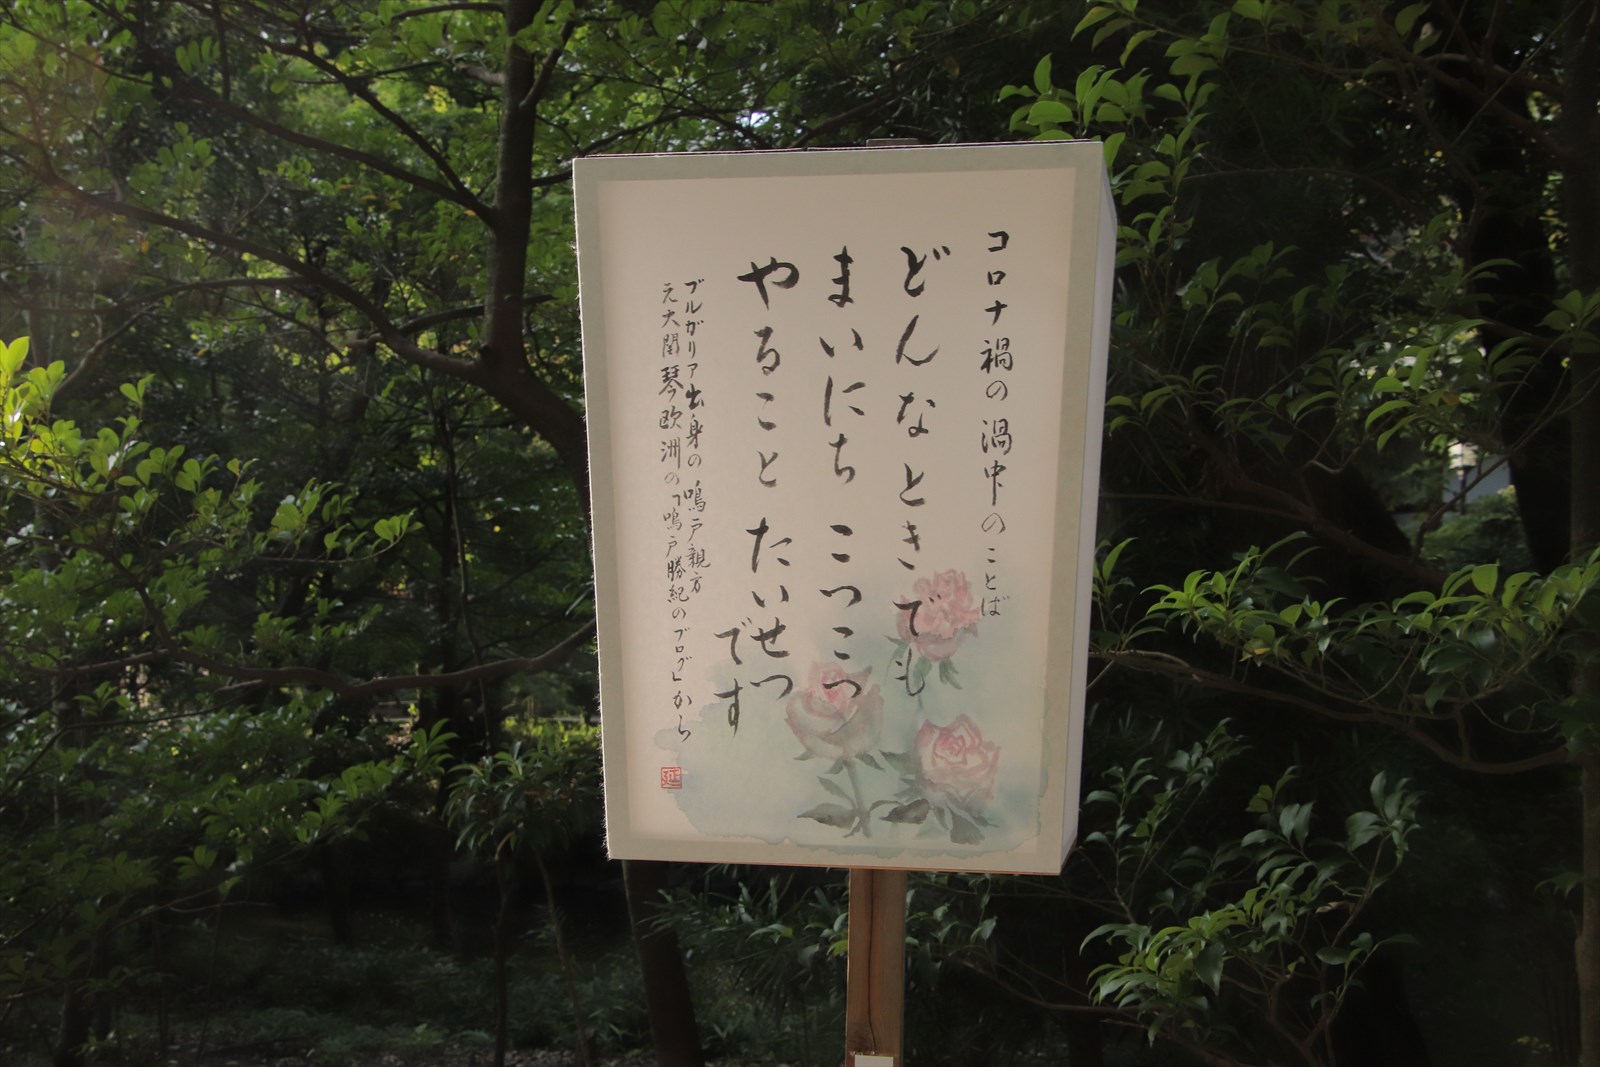 コロナ禍の渦中のことば
どんなときでも
まいにち こつこつ
やること たいせつ
です
ブルガリア出身の 鳴戸親方
元大関 琴欧洲の「鳴戸勝紀のブログ」から